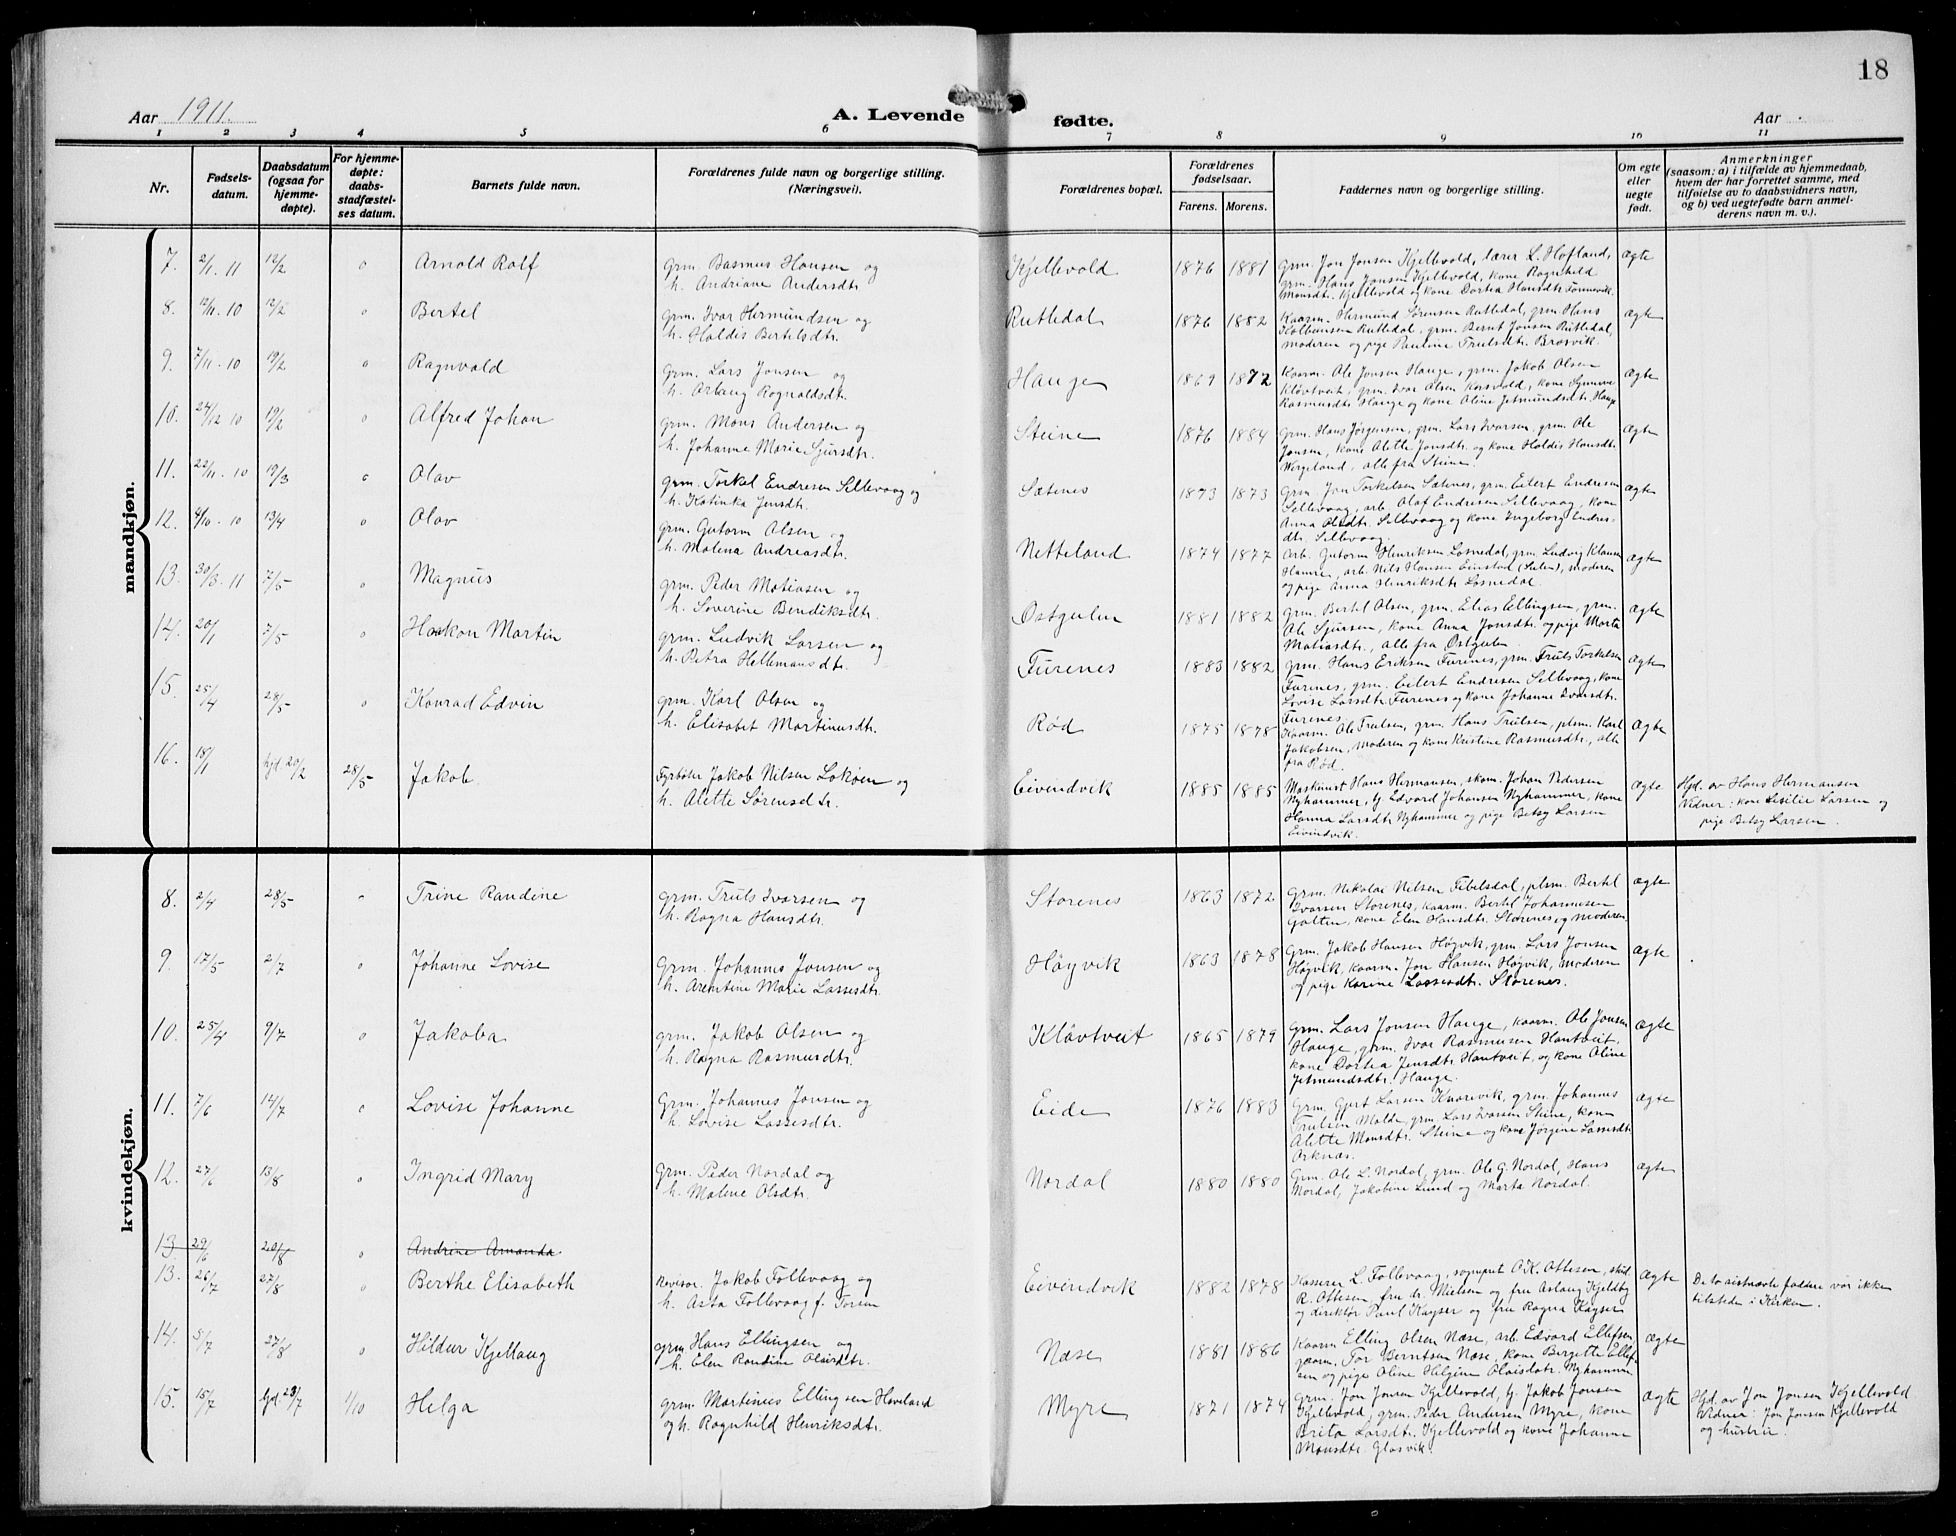 18
Aar 1911.
A. Levende fødte.
Aar
1 2 3 4 5 6 7 8 9 10 11
Nr.
Fødsels-
datum.
Daabsdatum
(ogsaa for
hjemme-
døpte).
For hjemme-
døpte:
daabs-
stadfæstel-
ses datum.
Barnets fulde navn.
Forældrenes fulde navn og borgerlige stilling.
(Næringsvei).
Forældrenes bopæl.
Forældrenes
fødselsaar.
Farens. Morens.
Faddernes navn og borgerlige stilling.
Om egte
eller
uegte
født.
Anmerkninger
(saasom: a) i tilfælde av hjemmedaab,
hvem der har forrettet samme, med
tilføielse av to daabsvidners navn,
og b) ved uegtefødte barn anmel-
derens navn m. v.).
mandkjøn.
7. 2/1. 11 12/2 o Arnold Rolf
grm. Rasmus Hansen og
h. Andriane Andersdtr.
Kjellevold 1876 1881
grm. Jon Jonsen Kjellevold, lærer L. Hofland,
grm. Hans Jonsen Kjellevold, kone Ragnhild
Monsdtr. Kjellevold og kone Dortea Hansdtr. Sönnevik.
ægte
8. 12/11. 10 12/2 o Bertel
grm. Ivar Hermundsen og
h. Holdis Bertelsdtr.
Rutledal 1876 1882
Kaarm. Hermund Sørensen Rutledal, grm Hans
Kolbensen Rutledal, grm. Bernt Jonsen Rutledal,
moderen og pige Pauline Trulsdtr. Brosvik.
ægte
9. 7/11. 10 19/2 o Ragnvald
grm. Lars Jonsen og
h. Aslaug Ragnaldsdtr.
Hauge 1869 1872
Kaarm. Ole Jonsen Hauge, grm. Jakob Olsen
Klövtveit, grm. Ivar Olsen Kjosvold, kone Synneve
Rasmusdtr. Hauge og kone Aline Jetmundsdtr. Hauge
ægte
10. 24/12 10 19/2 o Alfred Johan
grm. Mons Andersen og
h. Johanne Marie Sjursdtr.
Steine 1876 1884
Grm. Hans Jörgensen, grm. Lars Ivarsen, grm. Ole
Jonsen, kone Alette Jonsdtr. og kone Holdis Hansdtr.
Wergeland, alle fra Steine.
ægte
11. 22/11. 10 19/3 o Olav
grm. Torkel Endresen Sellevaag og
h. Katinka Jensdtr.
Sætenes 1873 1873
Grm. Jon Torkelsen Sætenes, grm. Eilert Endresen
Sellevaag, arb. Olaf Endresen Sellevaag, kone
Anna Olsdtr. Sellevaag og kone Ingeborg Endres-
dtr. Sellevaag.
ægte
12. 4/10. 10 13/4 o Olav
grm. Gutorm Olsen og
h. Malena Andreasdtr.
Netteland 1874 1877
Arb. Gutorm Henriksen Losnedal, grm. Ludvig Klausen
Hamre, arb. Nils Hansen Einstad (Sulen), moderen
og pige Anna Henriksdtr Losnedal.
ægte
13. 30/3. 11 7/5 o Magnus
grm. Peder Matiasen og
h. Soverine Bendiksdtr.
Østgulen 1881 1882
grm. Bertel Olsen, grm. Elias Ellingsen, grm.
Ole Sjursen, kone Anna Jonsdtr. og pige Marta
Matiasdtr., alle fra Østgulen.
ægte
14. 20/1 7/5 o Haakon Martin
grm. Ludvik Larsen og
h. Petra Hellemansdtr.
Furenes 1883 1882
grm. Hans Eriksen Furenes, grm. Truls Torkelsen
Furenes, grm. Eilert Endresen Sellevaag, kone
Lovise Larsdtr. Furenes og kone Johanne Ivarsdtr.
Furenes.
ægte
15. 25/4 28/5 o Konrad Edvin
grm. Karl Olsen og
h. Elisabet Martinusdtr.
Rød 1875 1878
Kaarm. Ole Trulsen, grm. Hans Trulsen, plsm. Karl
Jakobsen, moderen og kone Kristine Rasmusdtr., alle
fra Rød.
ægte
16. 18/1 hjd. 20/2 28/5 Jakob.
Fyrbøter Jakob Nilsen Lokøen og
h. Alette Sørensdtr.
Eivendvik 1885 1885
Maskinist Hans Hermansen, skom. Johan Pedersen
Nyhammer, tj Edvard Johansen Nyhammer, kone
Hanna Larsdtr Nyhammer og pige Betsy Larsen
Eivindvik.
ægte
Hjd. av Hans Hermansen
Vidner: kone Lisilie Larsen og
pige Betsy Larsen.
kvindekjøn.
8. 2/4 28/5 Trine Randine
grm. Truls Ivarsen og
h. Ragna Hansdtr.
Storenes 1863 1872
Grm. Nikolai Nilsen Tibelsdal, plsm. Bertel
Ivarsen Storenes, kaarm. Bertel Johannesen
Gotten, kone Elen Hansdtr. Storenes og moderen
ægte
9. 17/5 2/7 o Johanne Lovise
Grm. Johannes Jonsen og
h. Arentine Marie Lassesdtr.
Høyvik 1863 1878
Grm. Jakob Hansen Høyvik, grm. Lars Jonsen
Høyvik, kaarm. Jon Hansen Høyvik, moderen
og pige Karine Lassesdtr. Storenes.
ægte
10. 25/4 9/7 o Jakoba
grm. Jakob Olsen og
h. Ragna Rasmusdtr.
Klövtveit 1865 1879
Grm. Lars Jonsen Hauge, kaarm. Ole Jonsen
Hauge, grm. Ivar Rasmusen Hantveit,
kone Dortea Jensdtr. Hantveit, og kone Aline
Jetmundsdtr. Hauge.
ægte
11. 7/6 14/7 o Lovise Johanne
Grm. Johannes Jonsen og
h. Lovise Lassesdtr.
Eide 1876 1883
Grm. Gjert Larsen Knarvik, grm. Johannes
Trulsen Molde, grm. Lars Ivarsen Steine, kone
Alette Monsdtr. Steine og kone Jørgine Lassesdtr.
Arknæs.
ægte
12. 27/6 13/8 o Ingrid Mary
Grm. Peder Nordal og
h. Malene Olsdtr.
Nordal 1880 1880
Grm. Ole L. Nordal, grm. Ole G. Nordal, Hans
Nordal, Jakobine Lund og Marta Nordal.
ægte
13 29/6 20/8 o Andrine Amanda.
13. 26/7 27/8 o Berthe Elisabeth
Revisor. Jakob Follevaag og
h. Asta Follevaag f. Torem
Eivendvik 1882 1878
Kasserer L. Follevaag, sogneprst O.K. Ottesen, skid
R. Ottesen, fru dr. Nielsen og fru Aslaug Kjeldby
og direktør Paul Kayser og fru Ragna Kayser
ægte
De to sistnævte faddere var ikke
tilstede i kirken.
14. 5/7 27/8 o Hildur Kjellaug
grm Hans Ellingsen og
h. Elen Randine Olaisdtr.
Næse 1881 1886
Kaarm Elling Olsen Næse, arb. Edvard Ellefsen,
kaarm. Tor Berntsen Næse, kone Bergette Ellef-
sen og pige Oline Helgine Olaisdatr. Nyhammer
ægte
15. 15/7 hjd. 23/7 1/10 Helga
grm. Martinius Ellingsen Haveland
og h. Ragnhild Henriksdtr.
Myre 1871 1874
Grm. Jon Jonsen Kjellevold, tj. Jakob Jonsen
Kjellevold, grm. Peder Andersen Myre, kone
Brita Larsdtr. Kjellevold og kone Johanne
Monsdtr. Glosvik.
ægte
Hjd. av Jon Jonsen Kjellevold
Vidner: Jon Jonsen Kjellevold
og hustru.